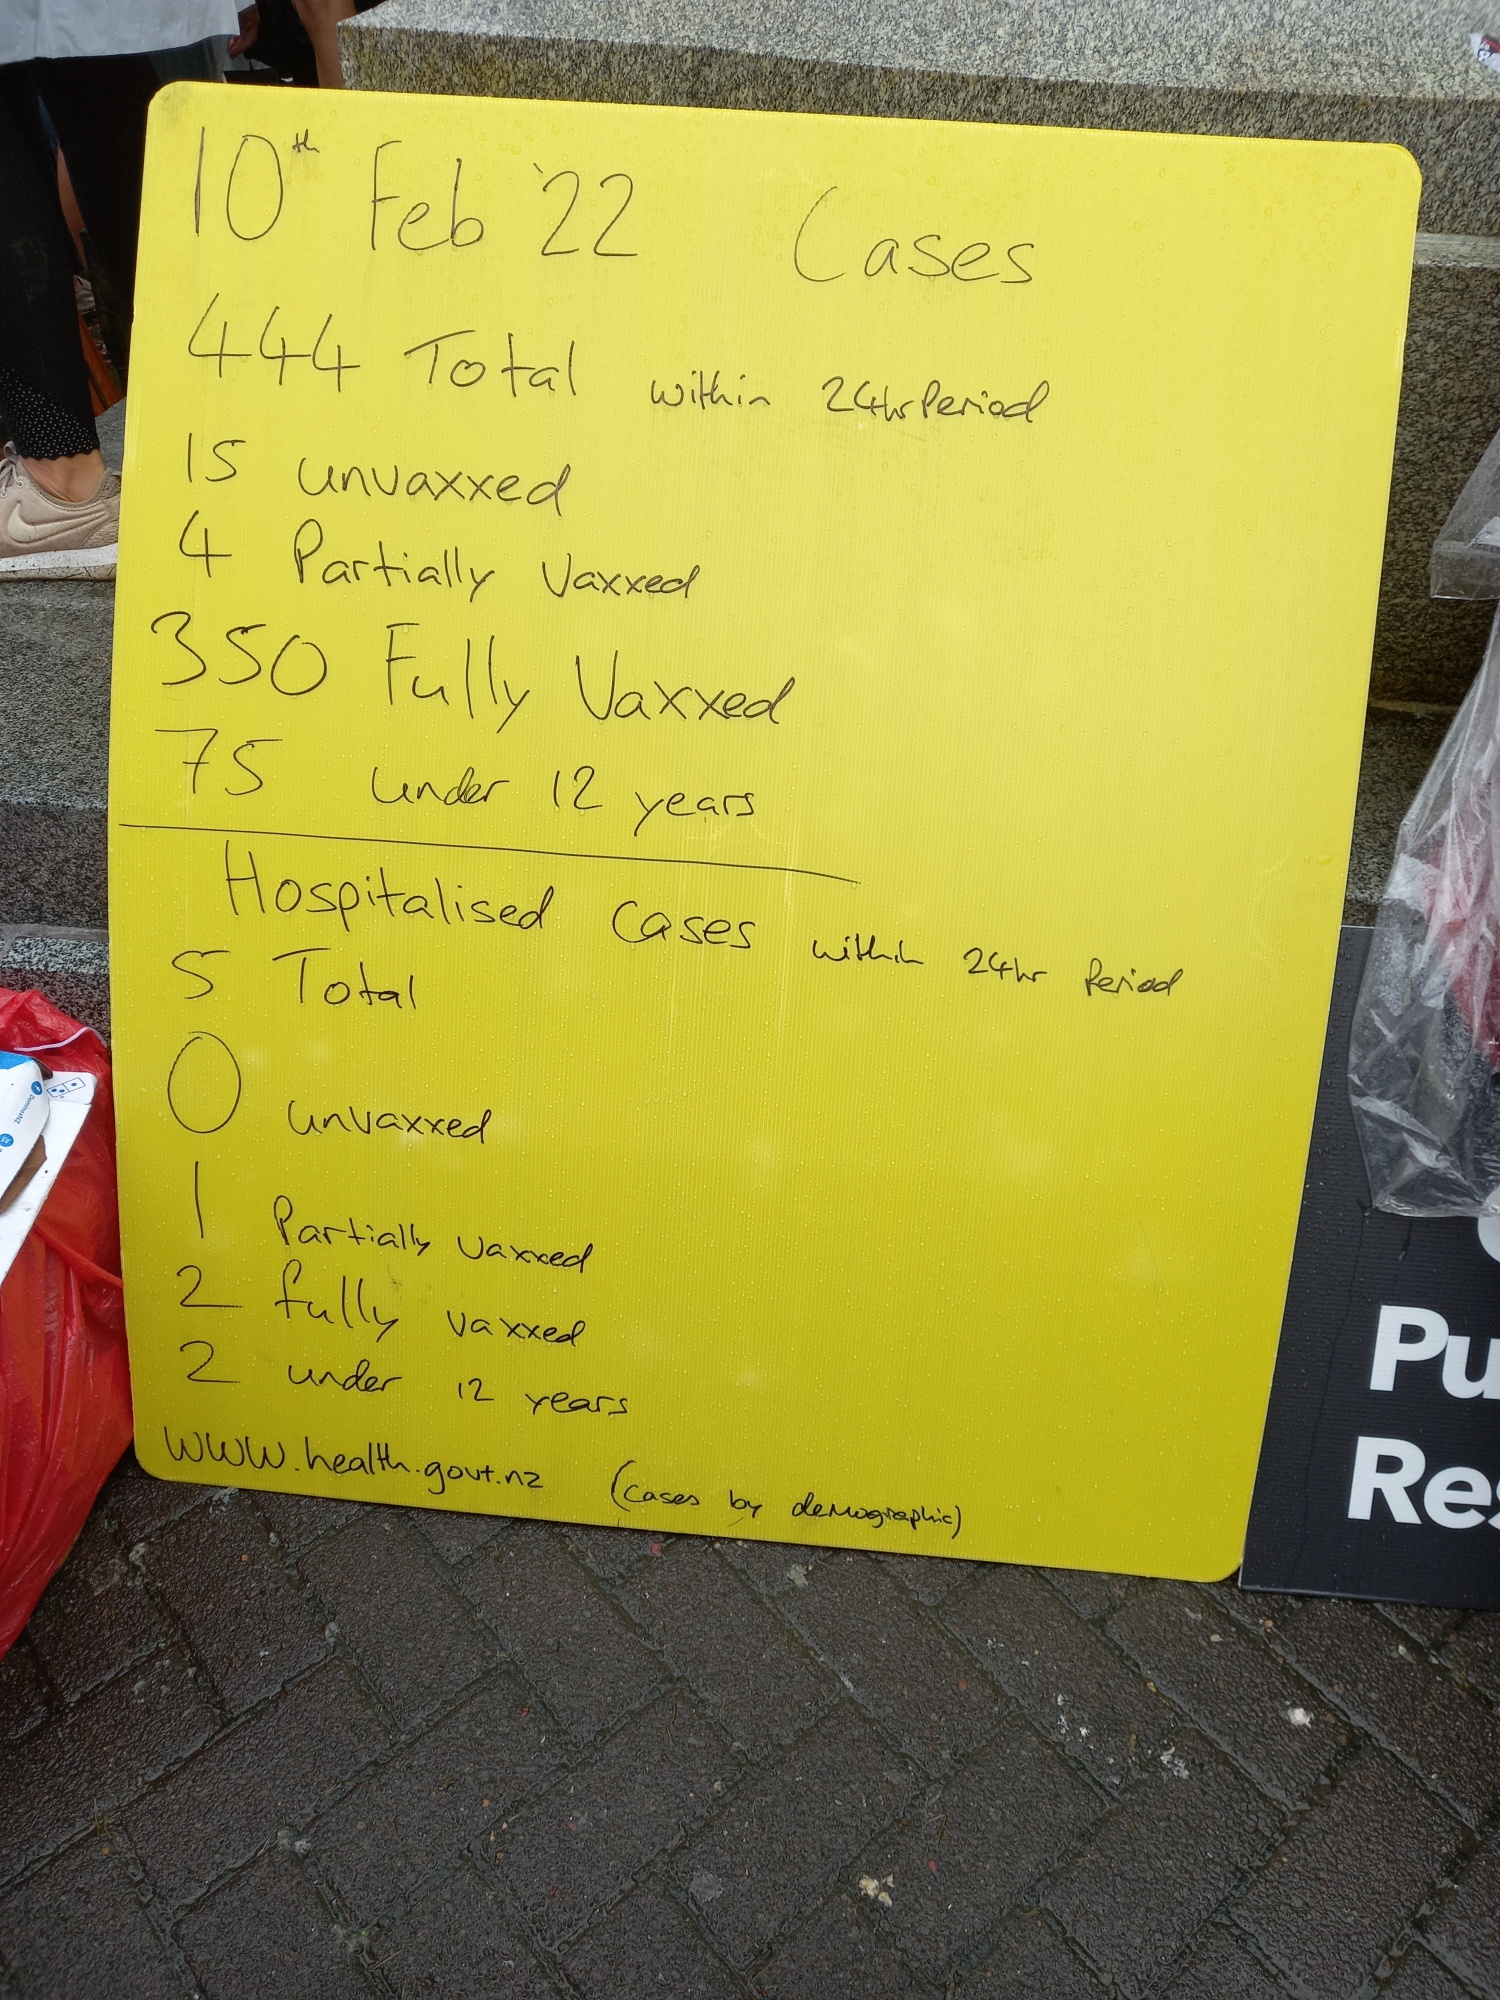 10th Feb '22 Cases
444 Total within 24hr Period
15 unvaxxed
4 Partially Vaxxed
350 Fully Vaxxed
75 under 12 years
Hospitalised Cases within 24hr Period
5 Total
0 unvaxxed
1 Partially vaxxed
2 fully vaxxed
2 under 12 years
www.health.govt.nz (cases by demographic)
Pu
Res